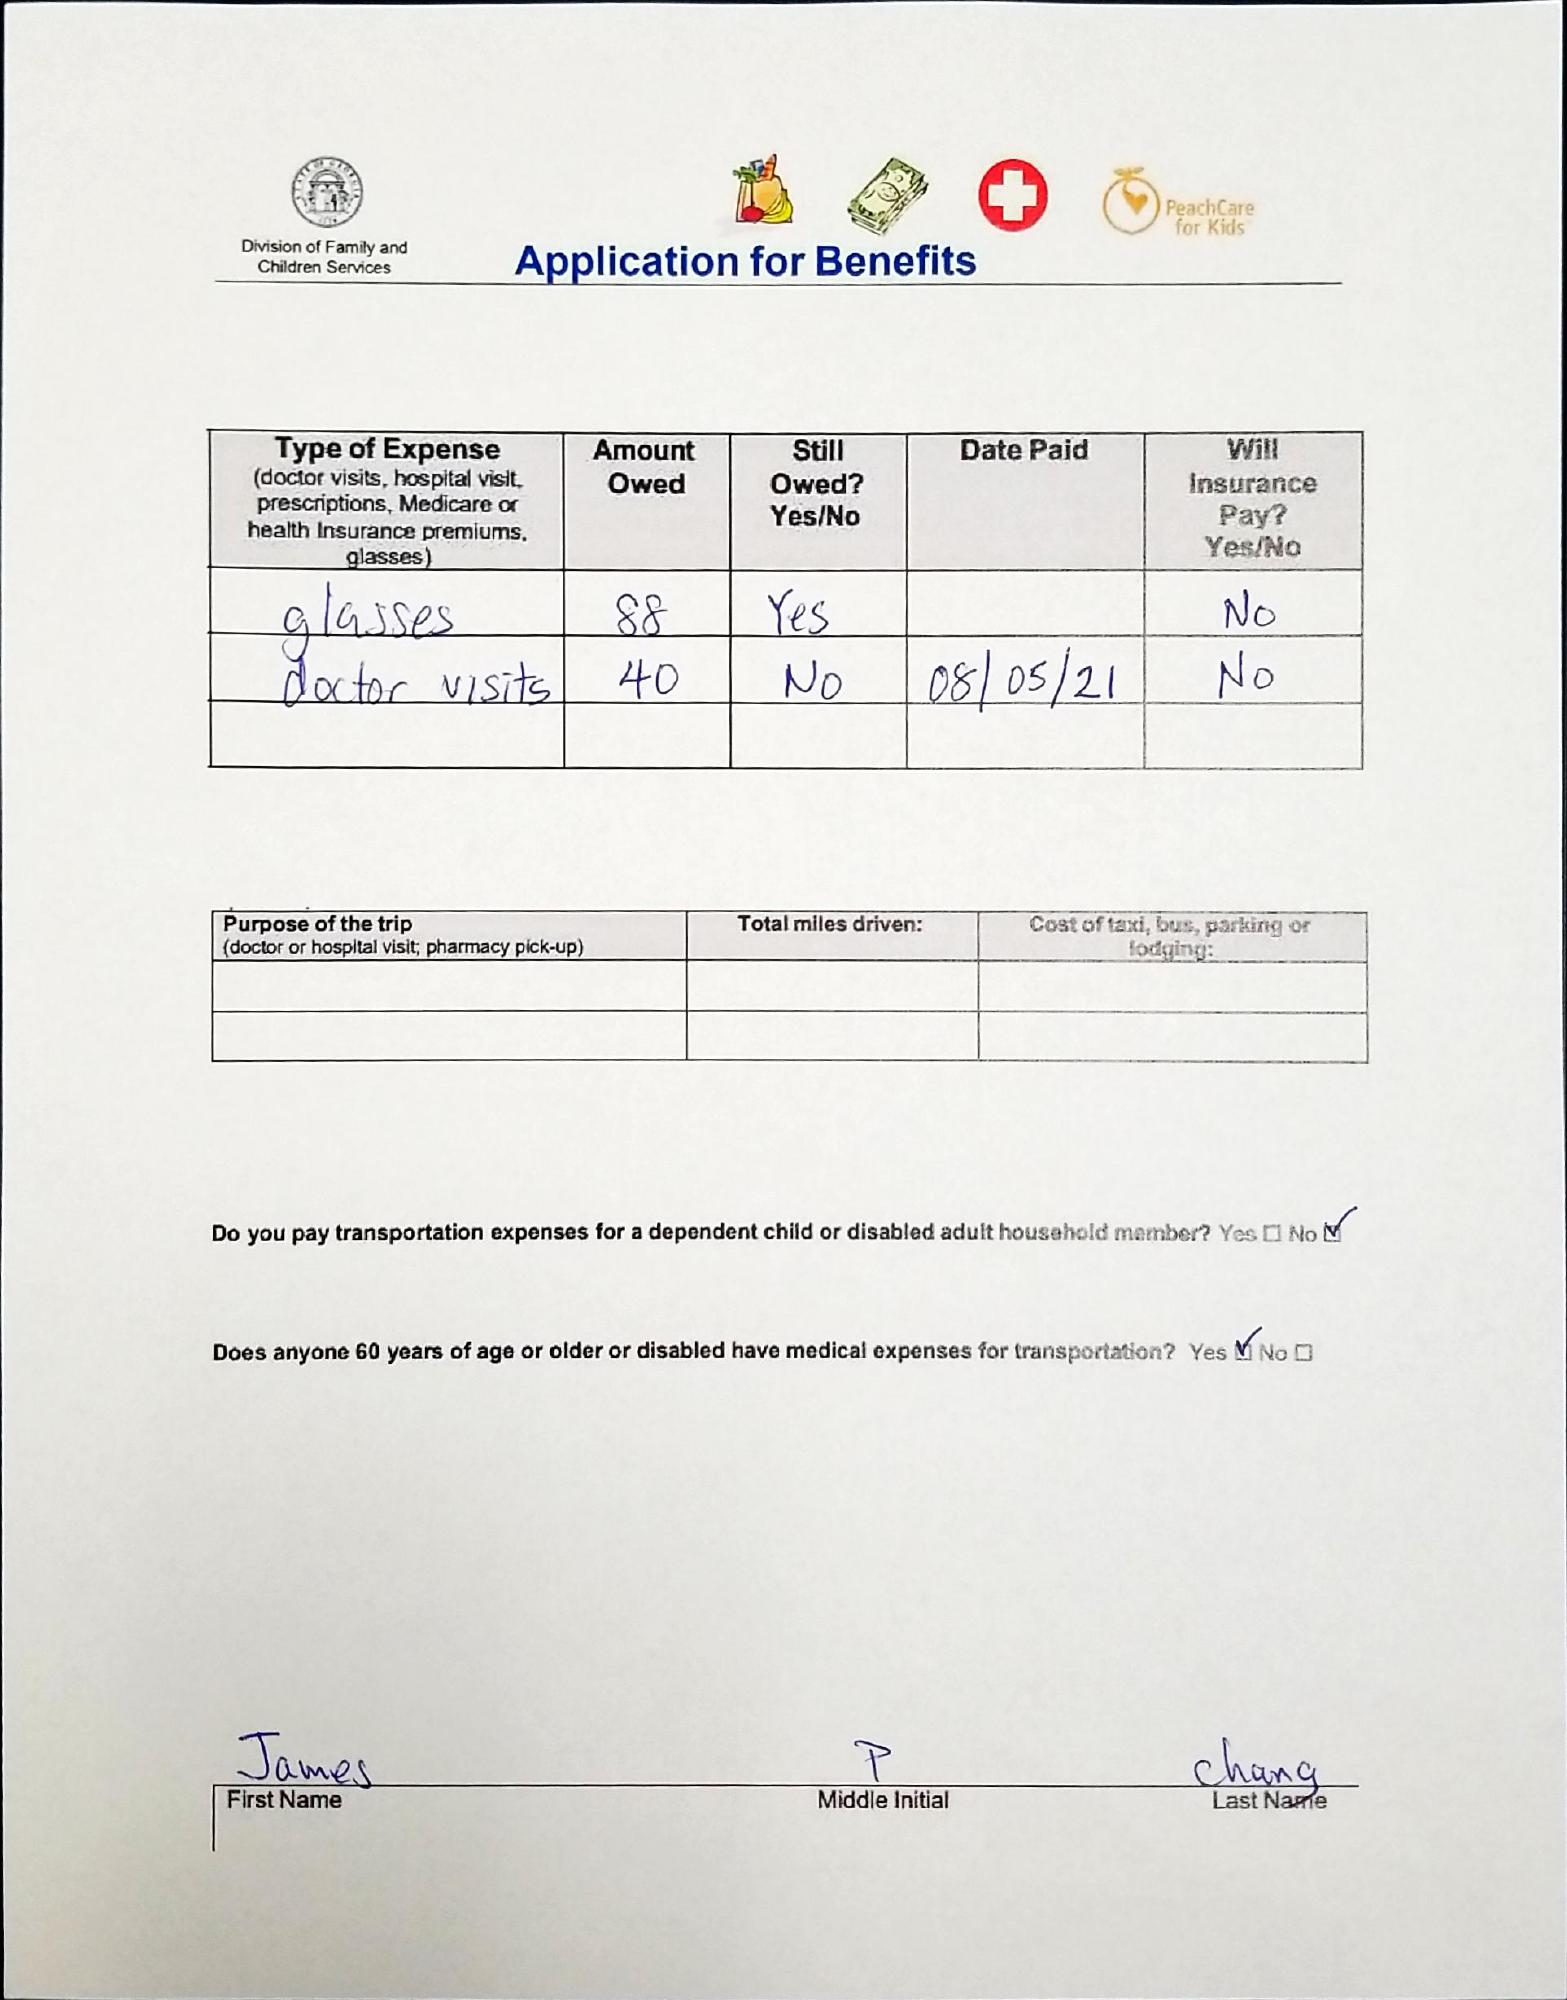 STATE OF GEORGIA
Division of Family and
Children Services
Application for Benefits
PeachCare
for Kids
Type of Expense
(doctor visits, hospital visit,
prescriptions, Medicare or
health Insurance premiums,
glasses)
Amount
Owed
Still
Owed?
Yes/No
Date Paid
Will
Insurance
Pay?
Yes/No
glasses 88 Yes No
doctor visits 40 No 08/05/21 No
Purpose of the trip
(doctor or hospital visit; pharmacy pick-up)
Total miles driven:
Cost of taxi, bus, parking or
lodging:
Do you pay transportation expenses for a dependent child or disabled adult household member? Yes ☐ No ☑
Does anyone 60 years of age or older or disabled have medical expenses for transportation? Yes ☑ No ☐
James P chang
First Name Middle Initial Last Name